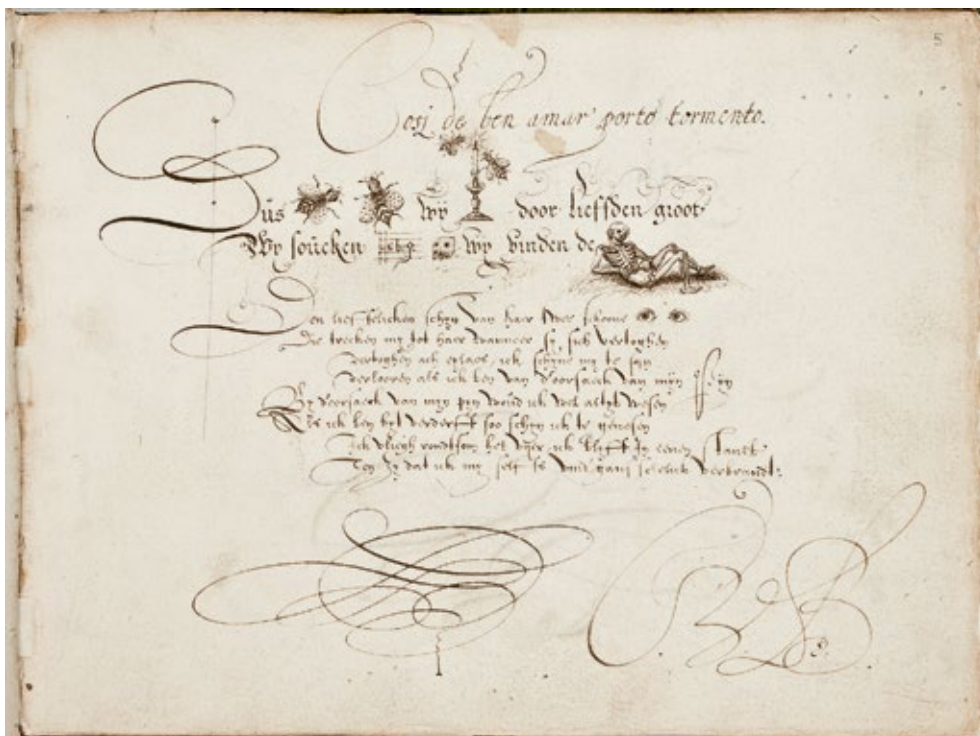 5
Cosi de ben amar porto tormento.
Dus wy door lieffden groot
Wy soucken wy vinden de
Den lieffelicken schyn van haer twee schoone
Die trecken my tot haer wanneer sy sich vertoghen
vertoghen ick eylaes, ick schyne my te syn
verlooren als ick ben van oorsaeck van myn pyn
By oorsaeck van myn pyn woud ick wel altyt wesen
Als ick ben byt verderfft soo schyn ick te genesen
Ick vliegh rondtsom het vyer, ick blyff in eenen standt
Ten zy dat ick my self